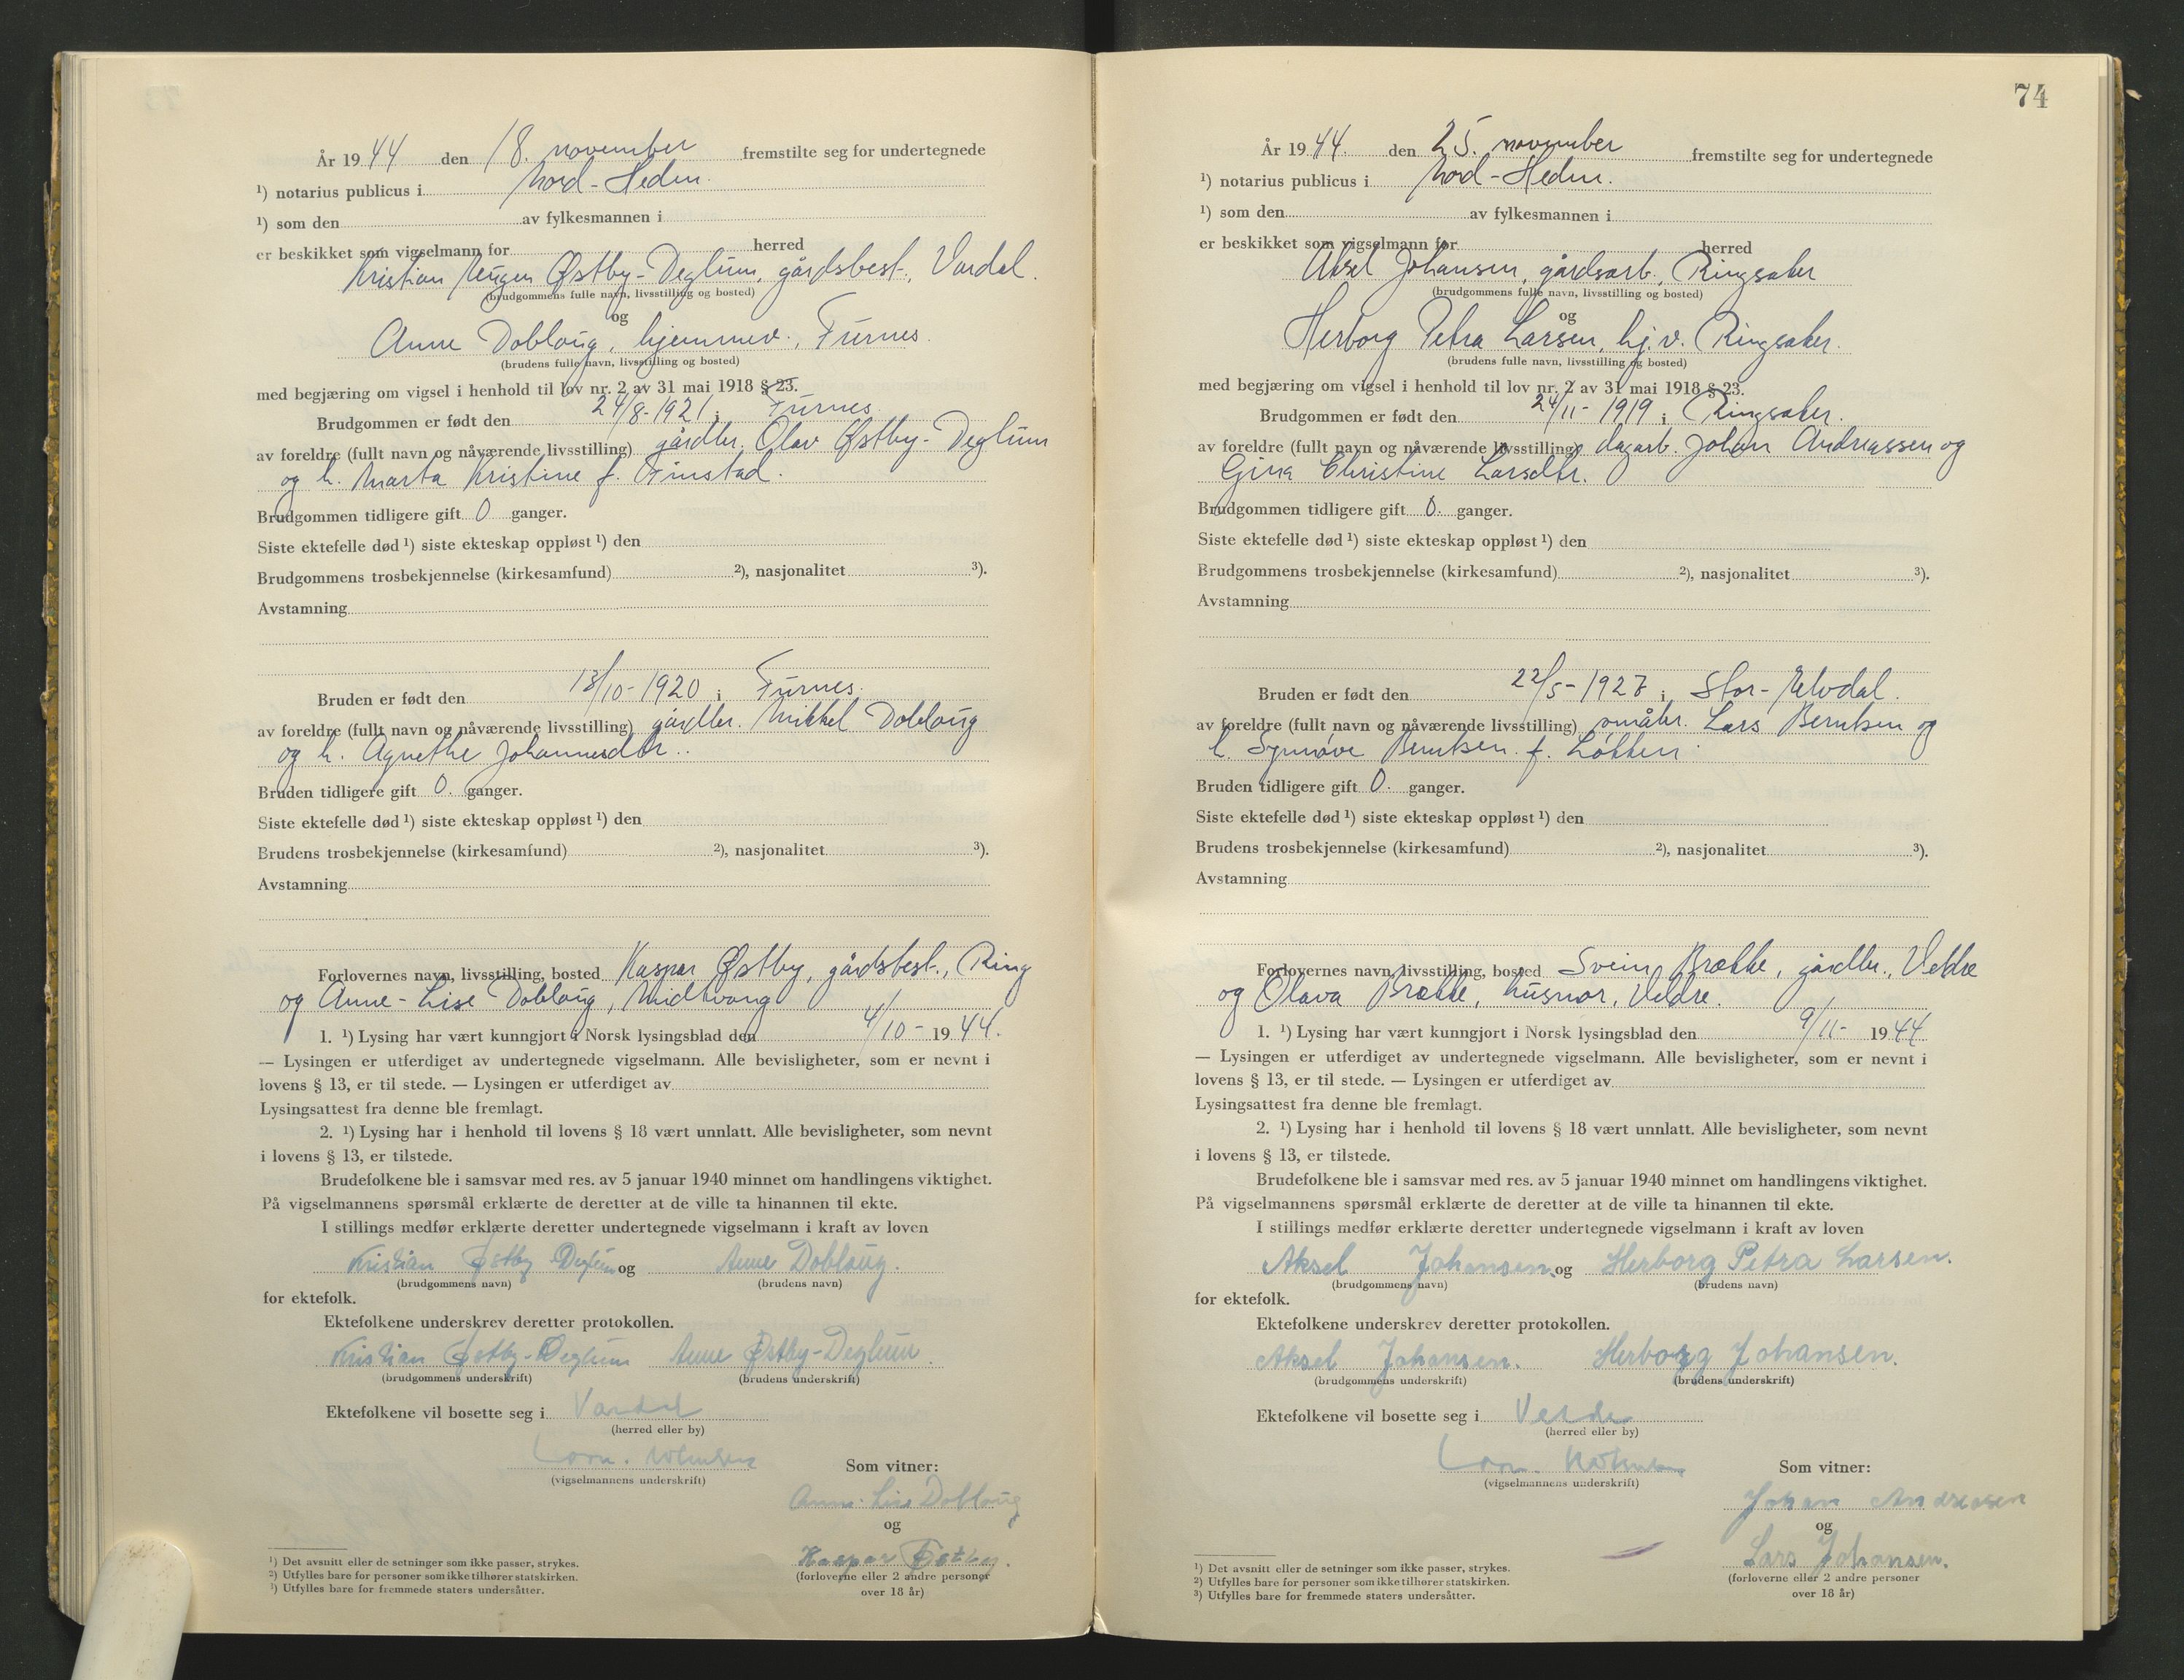 År 1944 den 18. november fremstilte seg for undertegnede
¹) notarius publicus i Nord-Hedm.
¹) som den av fylkesmannen i
er beskikket som vigselmann for herred
Kristian Østby-Deglum, gårdsbest., Vardal.
(brudgommens fulle navn, livsstilling og bosted)
og
Anne Dobloug, hjemmev., Furnes.
(brudens fulle navn, livsstilling og bosted)
med begjæring om vigsel i henhold til lov nr. 2 av 31 mai 1918 § 23.
Brudgommen er født den 24/8-1921 i Furnes
av foreldre (fullt navn og nåværende livsstilling) gårdbr. Olav Østby-Deglum
og h. Marta Kristine f. Finstad.
Brudgommen tidligere gift 0 ganger.
Siste ektefelle død ¹) siste ekteskap oppløst ¹) den
Brudgommens trosbekjennelse (kirkesamfund) ²), nasjonalitet ³).
Avstamning
Bruden er født den 13/10-1920 i Furnes.
av foreldre (fullt navn og nåværende livsstilling) gårdbr. Mikkel Dobloug
og h. Agnethe Johannesdtr..
Bruden tidligere gift 0. ganger.
Siste ektefelle død ¹) siste ekteskap oppløst ¹) den
Brudens trosbekjennelse (kirkesamfund) ²), nasjonalitet ³).
Avstamning
Forlovernes navn, livsstilling, bosted Kaspar Østby, gårdsbest., Ring
og Anne-Lise Dobloug, Midtvang
1. ¹) Lysing har vært kunngjort i Norsk lysingsblad den 4/10- 1944.
— Lysingen er utferdiget av undertegnede vigselmann. Alle bevisligheter, som er nevnt i
lovens § 13, er til stede. — Lysingen er utferdiget av
Lysingsattest fra denne ble fremlagt.
2. ¹) Lysing har i henhold til lovens § 18 vært unnlatt. Alle bevisligheter, som nevnt
i lovens § 13, er tilstede.
Brudefolkene ble i samsvar med res. av 5 januar 1940 minnet om handlingens viktighet.
På vigselmannens spørsmål erklærte de deretter at de ville ta hinannen til ekte.
I stillings medfør erklærte deretter undertegnede vigselmann i kraft av loven
Kristian Østby Deglum og Anne Dobloug.
(brudgommens navn) (brudens navn)
for ektefolk.
Ektefolkene underskrev deretter protokollen.
Kristian Østby-Deglum Anne Østby-Deglum.
(brudgommens underskrift) (brudens underskrift)
Ektefolkene vil bosette seg i Vardal
(herred eller by)
(vigselmannens underskrift)
Som vitner:
Anne-Lise Dobloug
og
Kaspar Østby.
(forloverne eller 2 andre personer
over 18 år)
¹) Det avsnitt eller de setninger som ikke passer, strykes.
²) Utfylles bare for personer som ikke tilhører statskirken.
³) Utfylles bare for fremmede staters undersåtter.
74
År 1944. den 25. november fremstilte seg for undertegnede
¹) notarius publicus i Nord-Hedm.
¹) som den av fylkesmannen i
er beskikket som vigselmann for herred
Aksel Johansen, gårdsarb., Ringsaker
(brudgommens fulle navn, livsstilling og bosted)
og
Herborg Petra Larsen, hj.v. Ringsaker.
(brudens fulle navn, livsstilling og bosted)
med begjæring om vigsel i henhold til lov nr. 2 av 31 mai 1918 § 23.
Brudgommen er født den 24/11-1919 i Ringsaker.
av foreldre (fullt navn og nåværende livsstilling) dagarb. Johan Andreassen og
Gina Christine Larsdtr.
Brudgommen tidligere gift 0. ganger.
Siste ektefelle død ¹) siste ekteskap oppløst ¹) den
Brudgommens trosbekjennelse (kirkesamfund) ²), nasjonalitet ³).
Avstamning
Bruden er født den 22/5- i Stor-Elvdal.
av foreldre (fullt navn og nåværende livsstilling) småbr. Lars Berntsen og
h. Synnøve Berntsen f. Løkken.
Bruden tidligere gift 0. ganger.
Siste ektefelle død ¹) siste ekteskap oppløst ¹) den
Brudens trosbekjennelse (kirkesamfund) ²), nasjonalitet ³).
Avstamning
Forlovernes navn, livsstilling, bosted Svein Brække, gårdbr., Veldre
og Olava Brække, husmor, Veldre.
1. ¹) Lysing har vært kunngjort i Norsk lysingsblad den 9/11- 1944
— Lysingen er utferdiget av undertegnede vigselmann. Alle bevisligheter, som er nevnt i
lovens § 13, er til stede. — Lysingen er utferdiget av
Lysingsattest fra denne ble fremlagt.
2. ¹) Lysing har i henhold til lovens § 18 vært unnlatt. Alle bevisligheter, som nevnt
i lovens § 13, er tilstede.
Brudefolkene ble i samsvar med res. av 5 januar 1940 minnet om handlingens viktighet.
På vigselmannens spørsmål erklærte de deretter at de ville ta hinannen til ekte.
I stillings medfør erklærte deretter undertegnede vigselmann i kraft av loven
Aksel Johansen. og Herborg Petra Larsen.
(brudgommens navn) (brudens navn)
for ektefolk.
Ektefolkene underskrev deretter protokollen.
Aksel Johansen. Herborg Johansen.
(brudgommens underskrift) (brudens underskrift)
Ektefolkene vil bosette seg i Veldre
(herred eller by)
(vigselmannens underskrift)
Som vitner:
Johan Andreasen
og
Lars Johansen.
(forloverne eller 2 andre personer
over 18 år)
¹) Det avsnitt eller de setninger som ikke passer, strykes.
²) Utfylles bare for personer som ikke tilhører statskirken.
³) Utfylles bare for fremmede staters undersåtter.